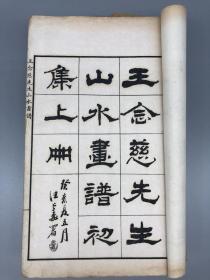 王念慈先生
山水畫譜初
集上冊
癸亥夏五月
署
王念慈先生山水畫譜